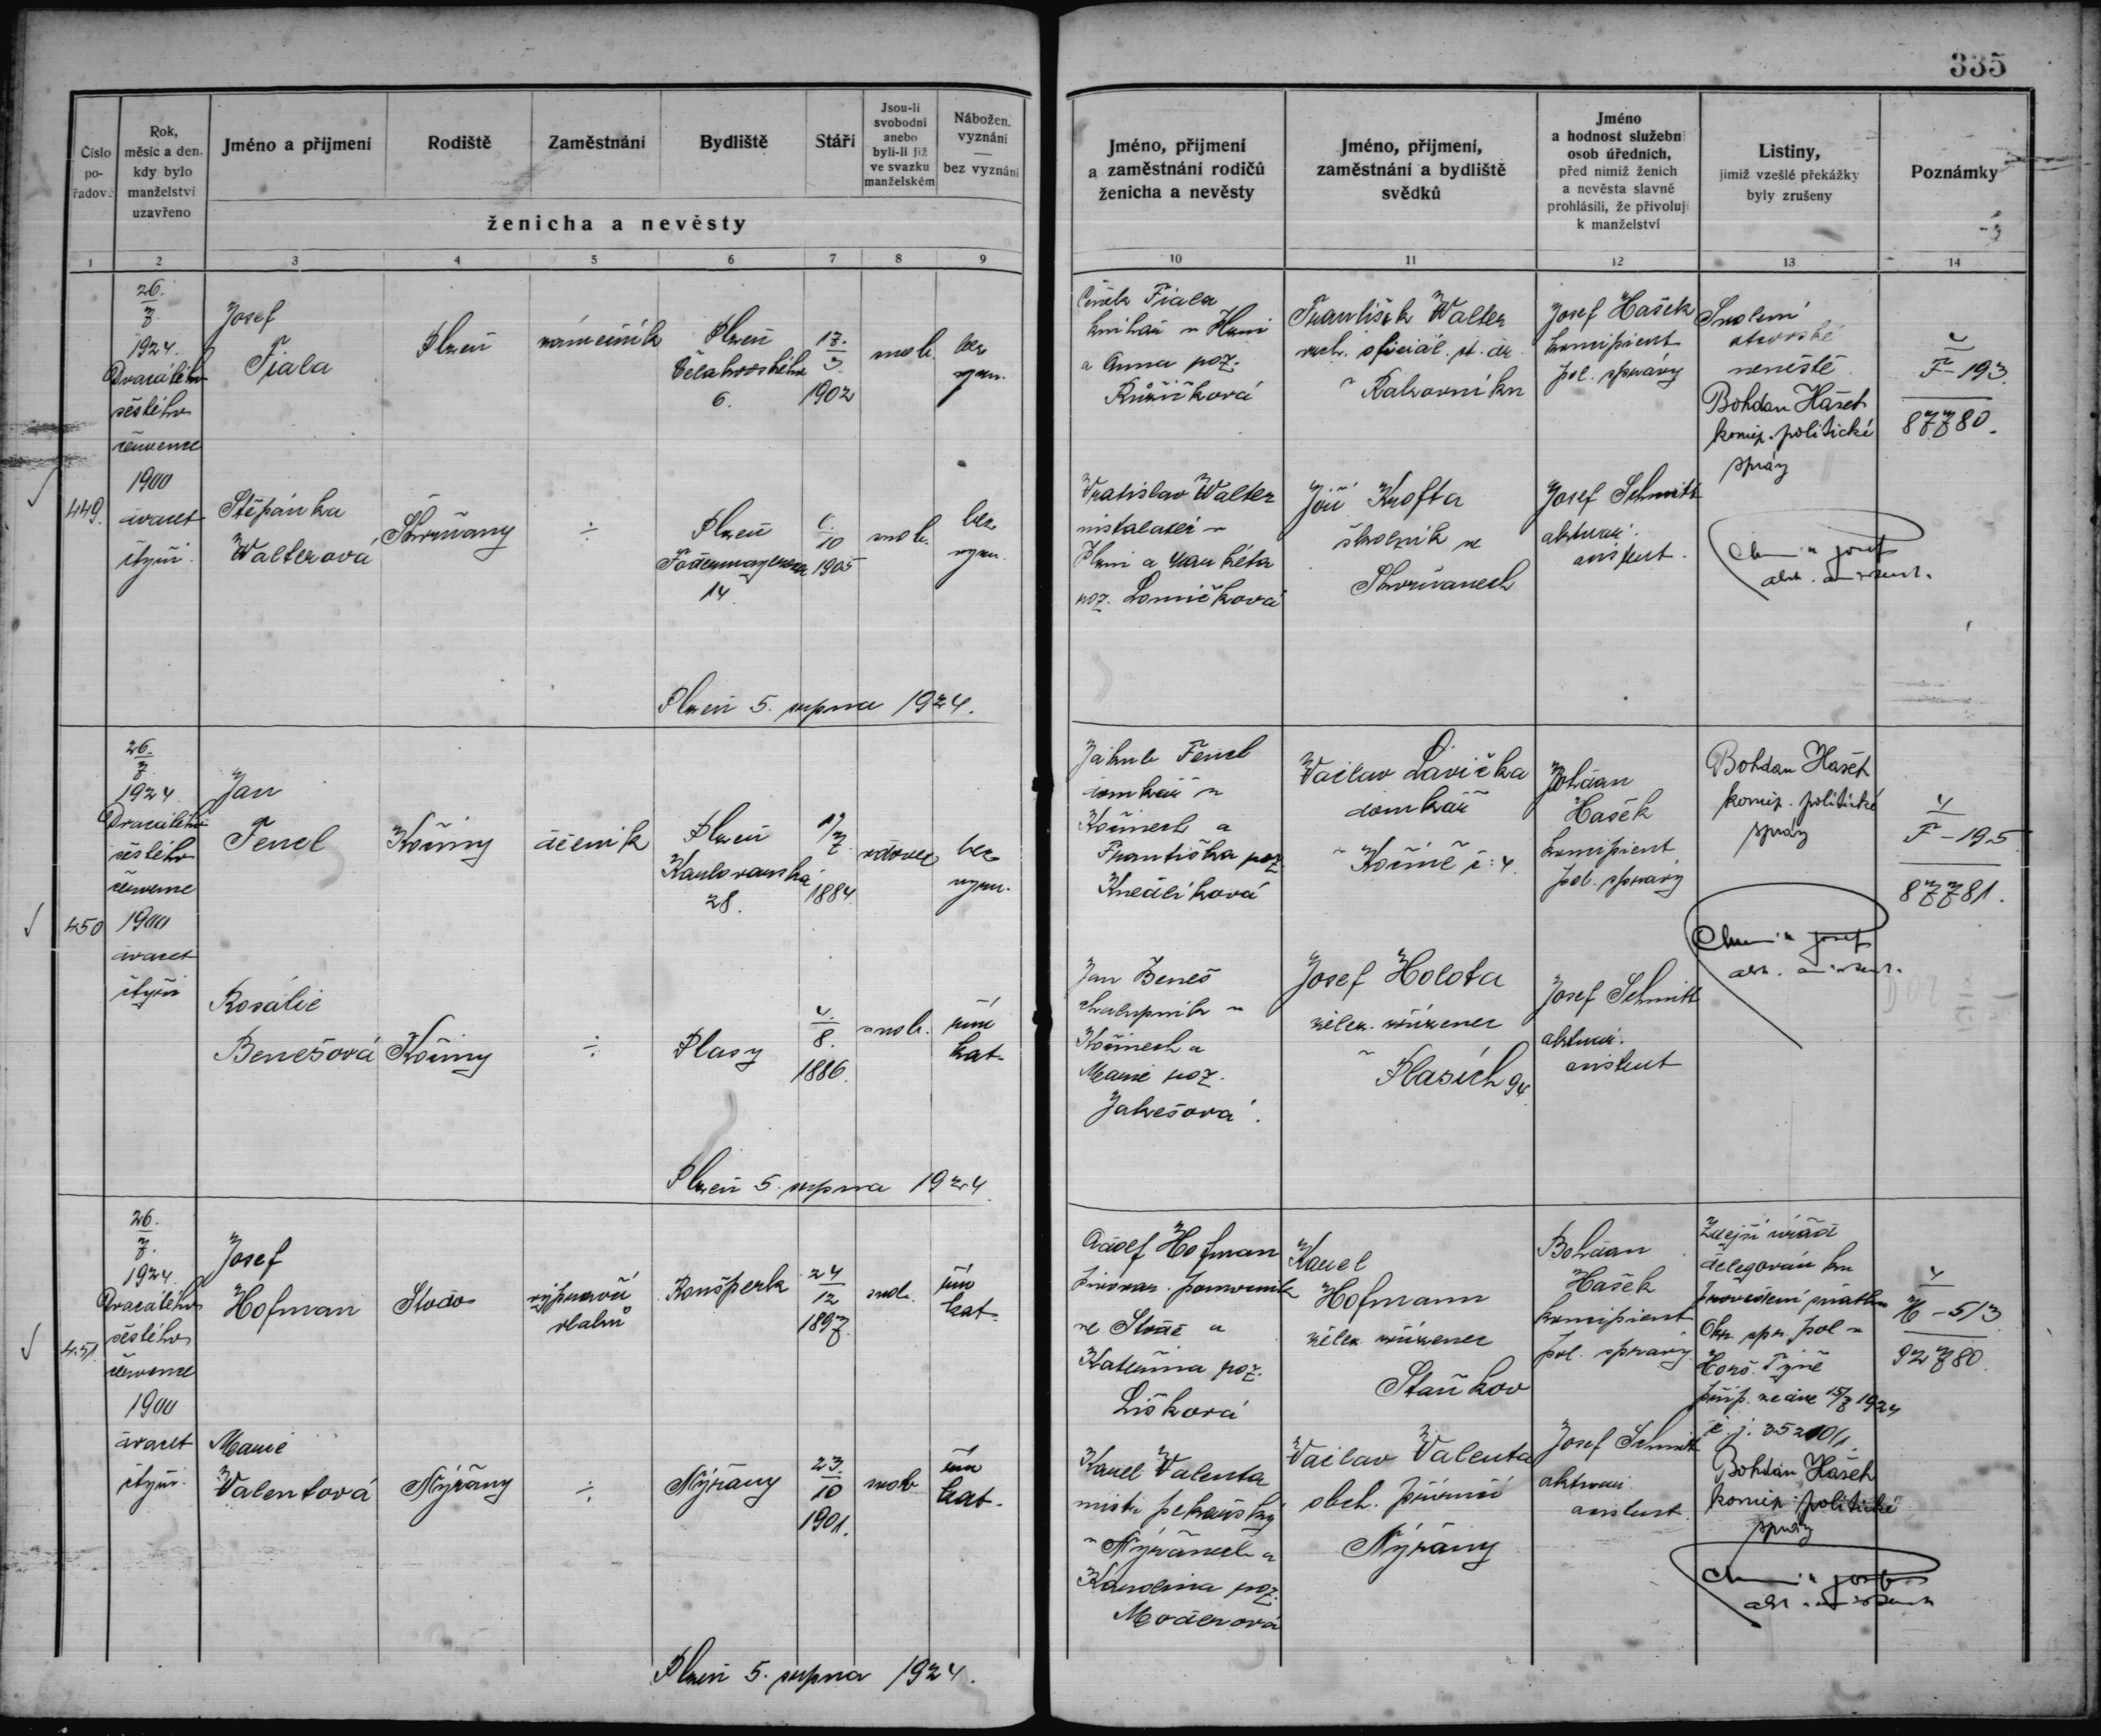 335
Číslo pořadové
Rok, měsíc a den, kdy bylo manželství uzavřeno
Jméno a příjmení
Rodiště
Zaměstnání
Bydliště
Stáří
Jsou-li svobodni anebo byli-li již ve svazku manželském
Nábožen. vyznání — bez vyznání
ženicha a nevěsty
Jméno, příjmení a zaměstnání rodičů ženicha a nevěsty
Jméno, příjmení, zaměstnání a bydliště svědků
Jméno a hodnost služební osob úředních, před nimiž ženich a nevěsta slavně prohlásili, že přivolují k manželství
Listiny, jimiž vzešlé překážky byly zrušeny
Poznámky
1 2 3 4 5 6 7 8 9 10 11 12 13 14
449.
26.
7.
1924.
Dvacátého
šestého
července
1900
dvacet
čtyři.
Josef
Fiala
Plzeň
zámečník
Plzeň
6.
17.
3.
1902
svob.
bez
vyzn.
Štěpánka
Walterová
÷
Plzeň
14
10
1905
svob.
bez
vyzn.
Plzeň 5. srpna 1924.
Fiala
knihař v Plzni
a Anna roz.
Růžičková
František Walter
Josef Hašek
koncipient
pol. správy
Svolení
otcovské
nevěstě
Bohdan Hašek
koncip. politické
správy
F-193.
87780.
Vratislav Walter
Plzni a Markéta
roz. Lomičková
Jiří Krofta
školník ve
Josef Schmitt
aktuár.
asistent.
450
26.
7.
1924
Dvacátého
šestého
července
1900
dvacet
čtyři
Jan
Fencl
Kočiny
dělník
Plzeň
Karlovarská
28.
7
1884
vdovec
bez
vyzn.
Rosálie
Benešová
Kočiny
÷
Plasy
8.
1886.
svob.
řím
kat.
Plzeň 5. srpna 1924
Jakub Fencl
domkář v
Kočinech a
Františka roz.
Knedlíková
Václav Lavička
domkář
v Kočíně č: 4.
Bohdan
Hašek
koncipient
pol. správy
Bohdan Hašek
koncip. politické
správy
F-195
87781.
Jan Beneš
chalupník v
Kočinech a
Marie roz.
Jakešová.
Josef Holota
želez. zřízenec
v Plasích 94
Josef Schmitt
aktuár.
asistent
451.
26.
7.
1924
Dvacátého
šestého
července
1900
dvacet
čtyři.
Josef
Hofman
Stodo
výpravčí
vlaků
Ronšperk
24
12
1897
svob.
řím
kat.
Marie
Valentová
Nýřany
÷
Nýřany
23.
10
1901.
svob
řím
kat.
Plzeň 5. srpna 1924.
Adolf Hofman
a
Kateřina roz.
Lišková
Karel
Hofmann
želez. zřízenec
Staňkov
Bohdan
Hašek
koncipient
pol. správy
Zdejší úřad
delegován ku
provedení sňatku
Okr. spr. pol v
Horš. Týně
příp. ze dne 15/7 1924
Bohdan Hašek
koncip. politické
správy
H-513
92780.
Karel Valenta
mistr pekařský
v Nýřanech a
Karolina roz.
Václav Valenta
obch. příručí
Nýřany
Josef Schmitt
aktuár.
asistent